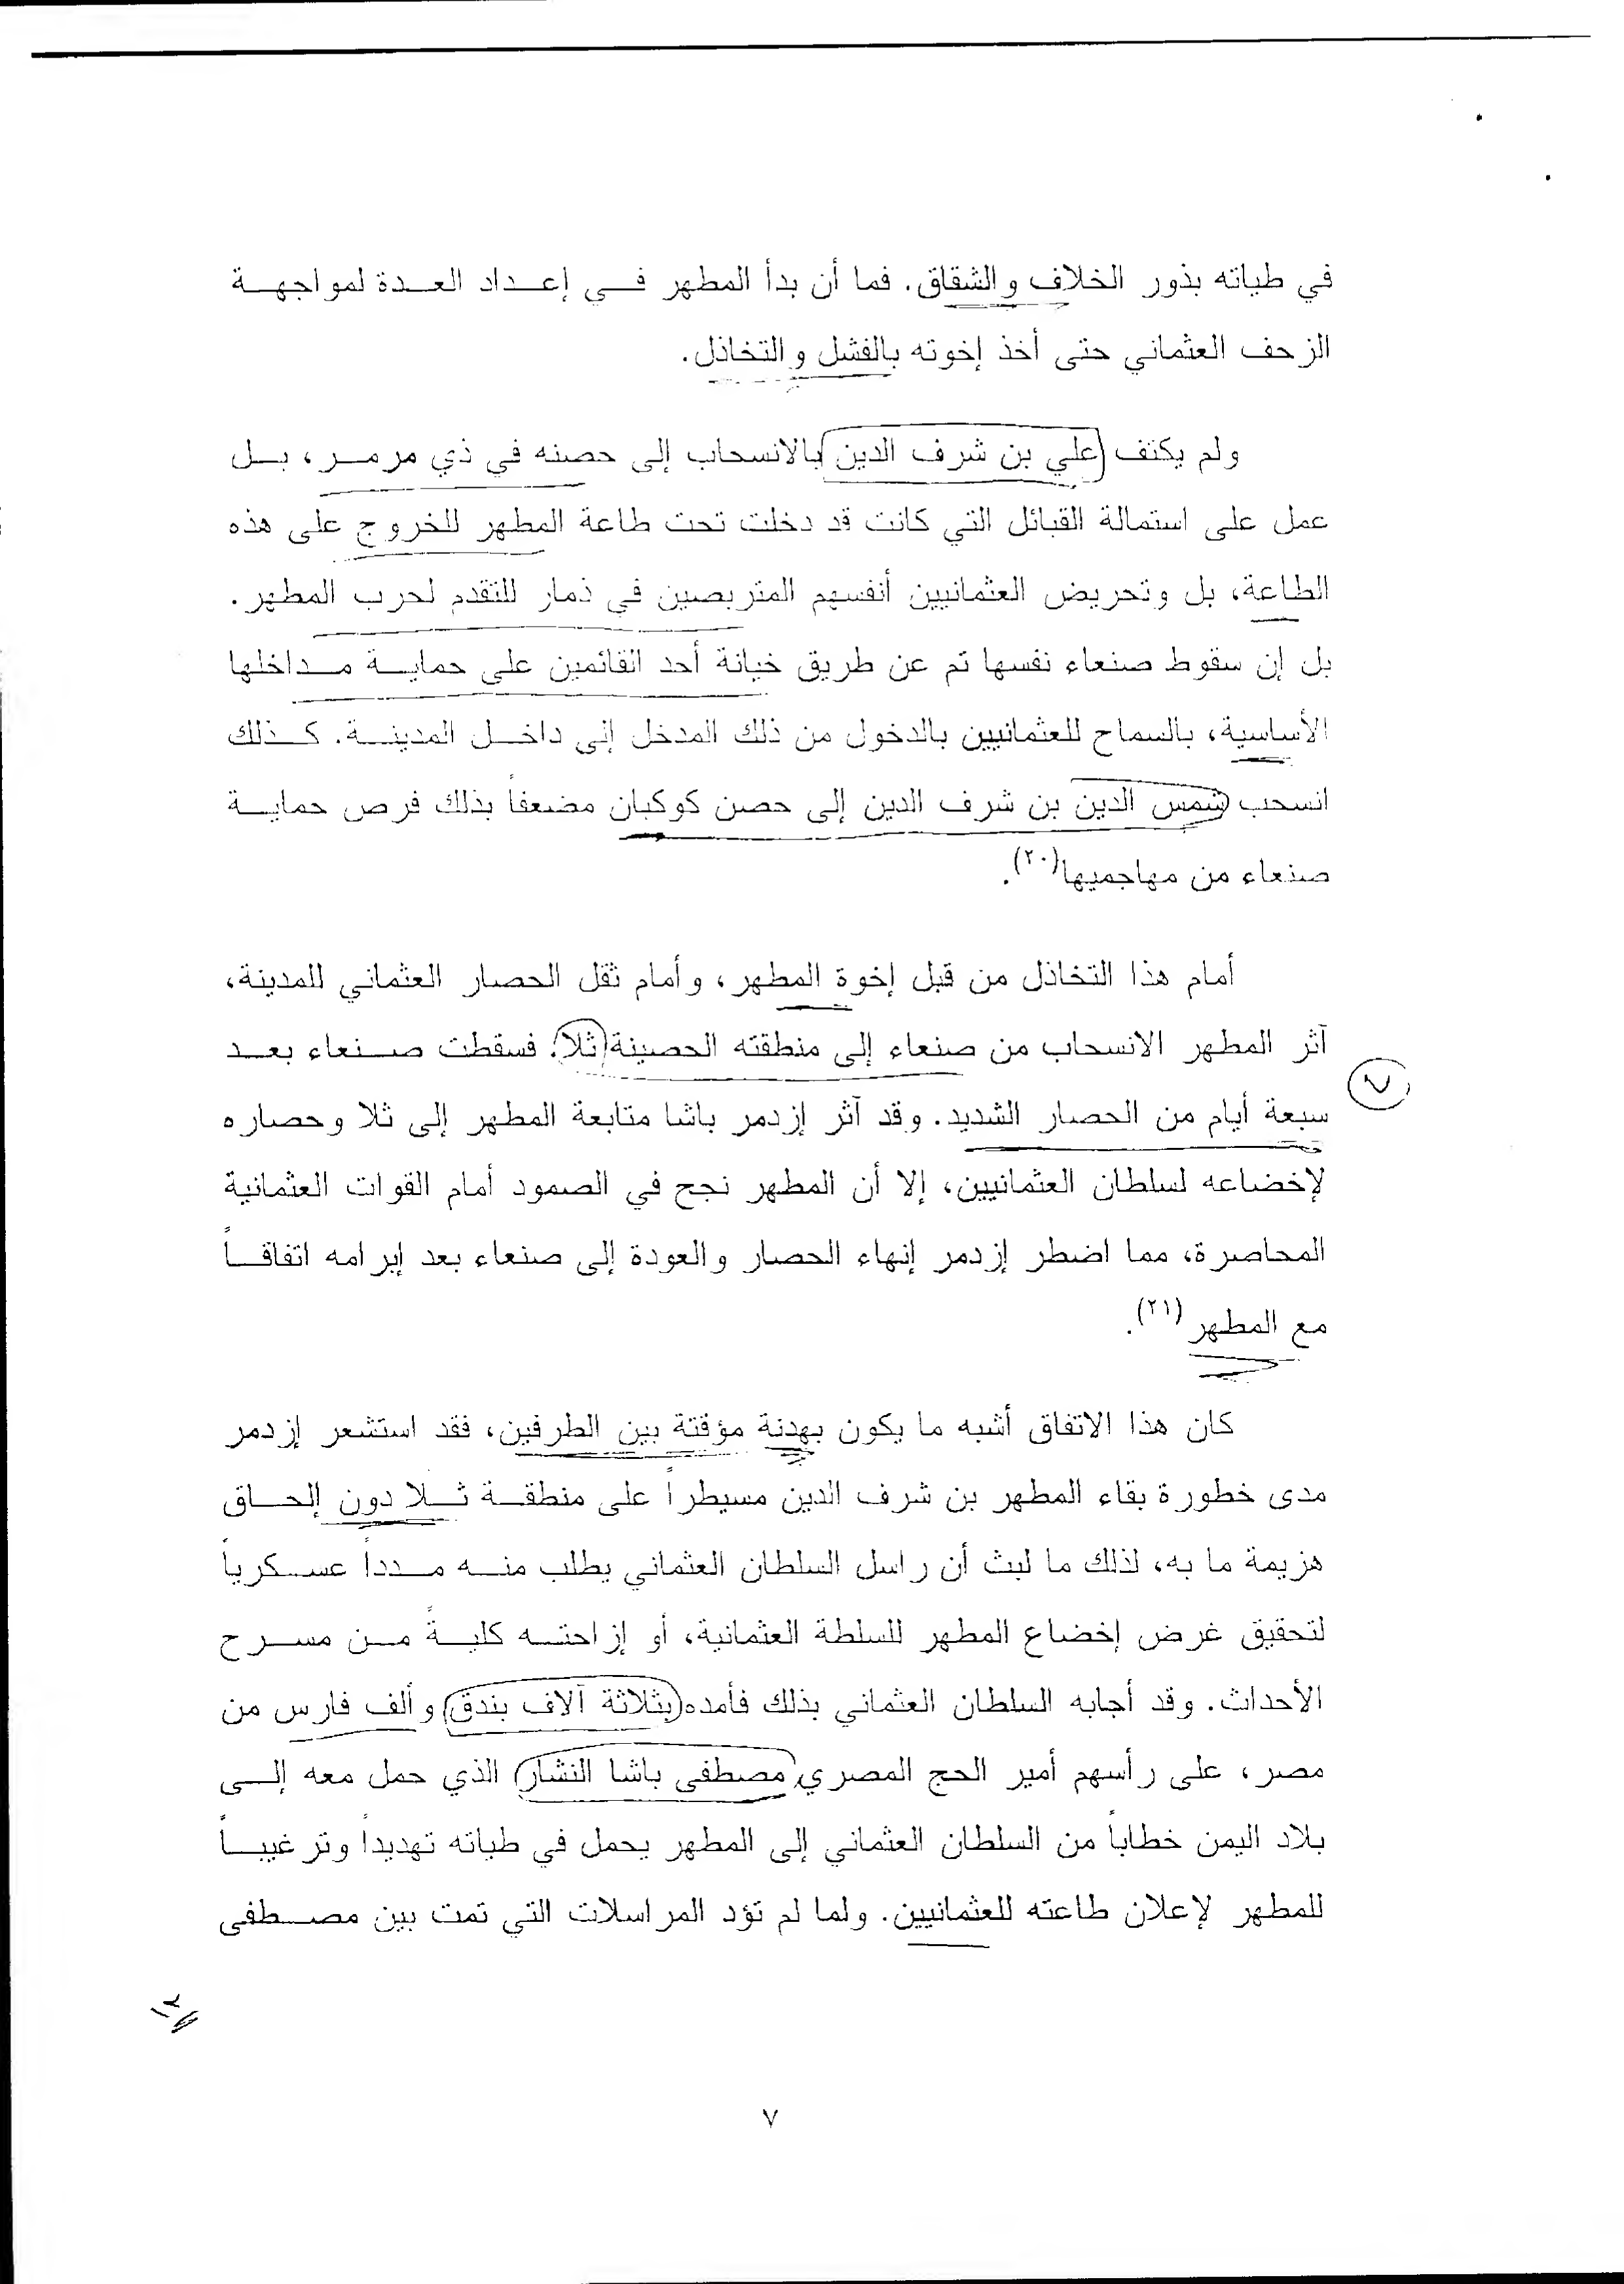 في طياته بذور الخلاف والشقاق. فما أن بدأ المطهر في إعداد العدة لمواجهة
الزحف العثماني حتى أخذ إخوته بالفشل والتخاذل.
ولم يكتف (علي بن شرف الدين) بالانسحاب إلى حصنه في ذي مرمر، بل
عمل على استمالة القبائل التي كانت قد دخلت تحت طاعة المطهر للخروج على هذه
الطاعة، بل وتحريض العثمانيين أنفسهم المتربصين في ذمار للتقدم لحرب المطهر.
بل إن سقوط صنعاء نفسها تم عن طريق خيانة أحد القائمين على حماية مداخلها
الأساسية، بالسماح للعثمانيين بالدخول من ذلك المدخل إلى داخل المدينة. كذلك
انسحب شمس الدين بن شرف الدين إلى حصن كوكبان مضعفاً بذلك فرص حماية
صنعاء من مهاجميها(٢٠).
أمام هذا التخاذل من قبل إخوة المطهر، وأمام ثقل الحصار العثماني للمدينة،
آثر المطهر الانسحاب من صنعاء إلى منطقته الحصينة (ثلا). فسقطت صنعاء بعد
٧
سبعة أيام من الحصار الشديد. وقد آثر إزدمر باشا متابعة المطهر إلى ثلا وحصاره
لإخضاعه لسلطان العثمانيين، إلا أن المطهر نجح في الصمود أمام القوات العثمانية
المحاصرة، مما اضطر إزدمر إنهاء الحصار والعودة إلى صنعاء بعد إبرامه اتفاقاً
مع المطهر (٢١).
كان هذا الاتفاق أشبه ما يكون بهدنة مؤقتة بين الطرفين، فقد استشعر إزدمر
مدى خطورة بقاء المطهر بن شرف الدين مسيطراً على منطقة ثلا دون إلحاق
هزيمة ما به، لذلك ما لبث أن راسل السلطان العثماني يطلب منه مدداً عسكرياً
لتحقيق غرض إخضاع المطهر للسلطة العثمانية، أو إزاحته كليةً من مسرح
الأحداث. وقد أجابه السلطان العثماني بذلك فأمده (بثلاثة آلاف بندق) وألف فارس من
مصر، على رأسهم أمير الحج المصري مصطفى باشا النشار الذي حمل معه إلى
بلاد اليمن خطاباً من السلطان العثماني إلى المطهر يحمل في طياته تهديداً وترغيباً
للمطهر لإعلان طاعته للعثمانيين. ولما لم تؤد المراسلات التي تمت بين مصطفى
٧